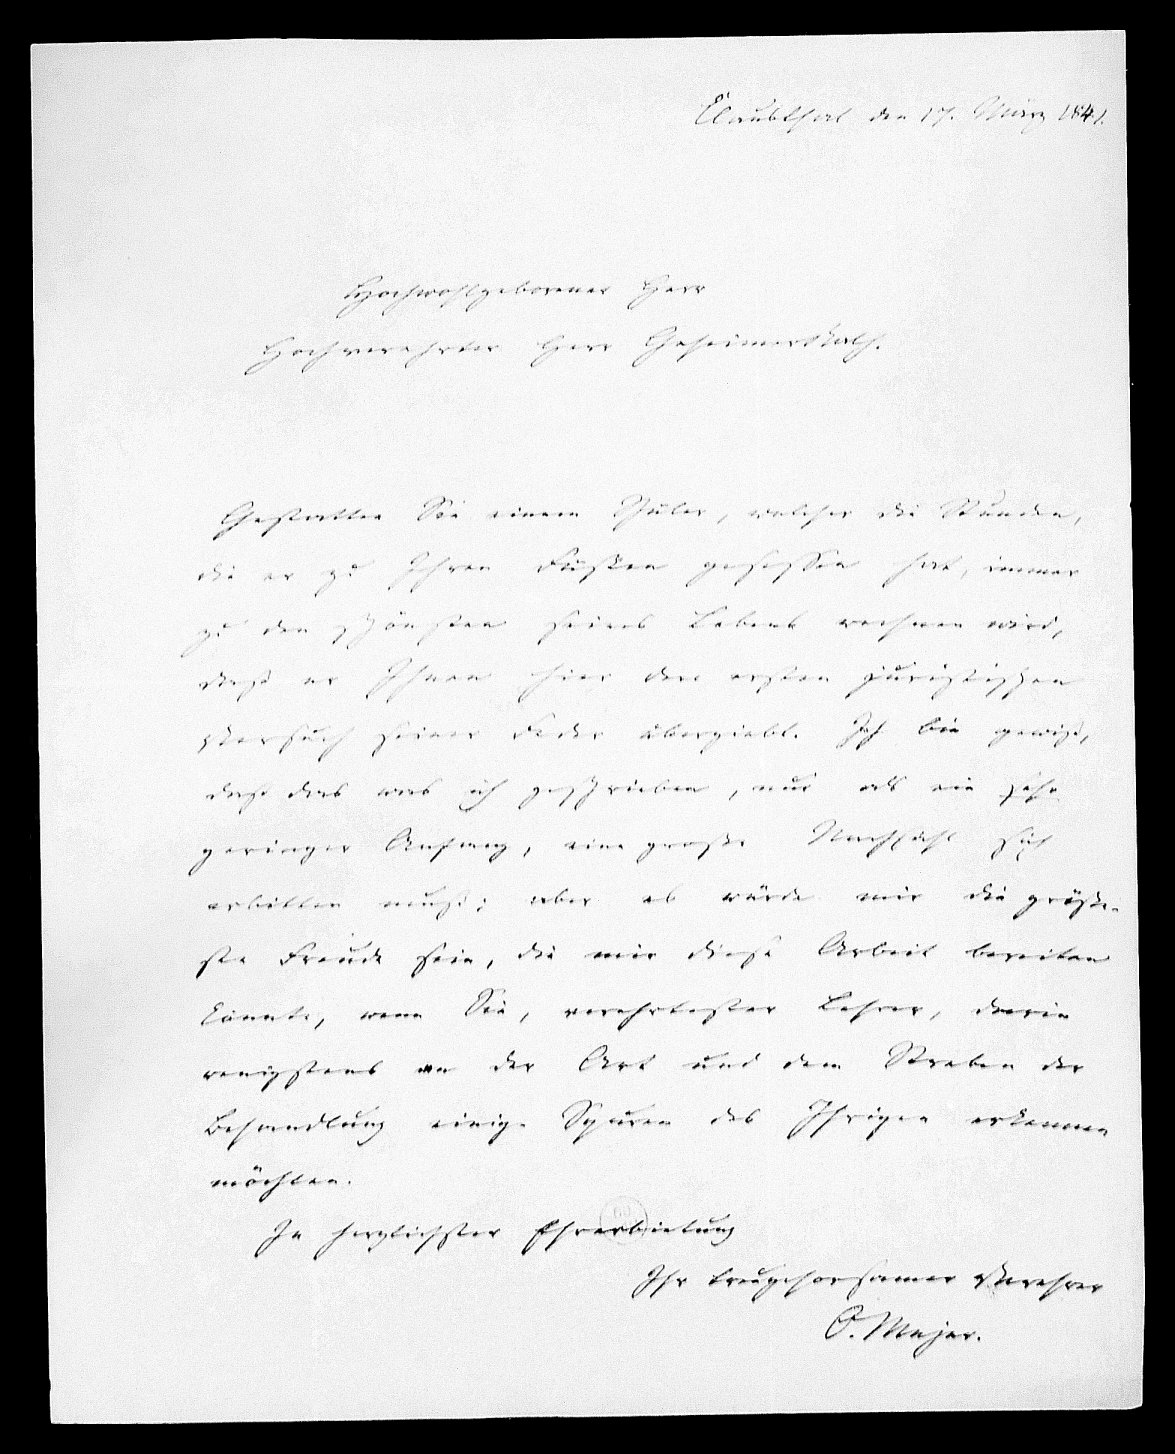 Clausthal den 17. März 1841.
Hochwohlgeborener Herr
Hochverehrter Herr Geheimerath.
Gestatten Sie einem Schüler, welcher die Stunden,
die er zu Ihren Füßen gesessen hat, immer
zu den schönsten seines Lebens rechnen wird,
daß er Ihnen hier den ersten juristischen
Versuch seiner Feder übergiebt. Ich bin gewiß,
daß das was ich geschrieben, nur als ein sehr
geringer Anfang, eine große Nachsicht sich
erbitten muß; aber es würde mir die größe-
ste Freude sein, die mir diese Arbeit bereiten
könnte, wenn Sie, verehrtester Lehrer, darin
wenigstens an der Art und dem Streben der
Behandlung einige Spuren des Ihrigen erkennen
möchten.
In herzlichster Ehrerbietung
Ihr treugehorsamer Verehrer
O. Mejer.